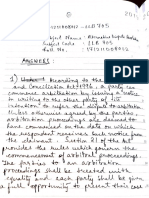 171211008012 - LLB 705
Subject Name : Alternative Dispute
Subject Code : LLB 705
Roll No. : 171211008012
ANSWERS
1) According to the
and Conciliation Act, 1996, a party can
commence arbitration by issuing a
in writing to the other party of its
intention to refer the dispute to arbitration.
Unless otherwise agreed by the parties,
arbitration proceedings are deemed to
have commenced on the date on which
the respondent receives such notice from
the claimant. Section 21 of the Act
provides the rules which govern the
commencement of arbitral proceedings.
The parties to an arbitral
proceedings shall be treated with
equality and each party shall be given
a full opportunity to present their case